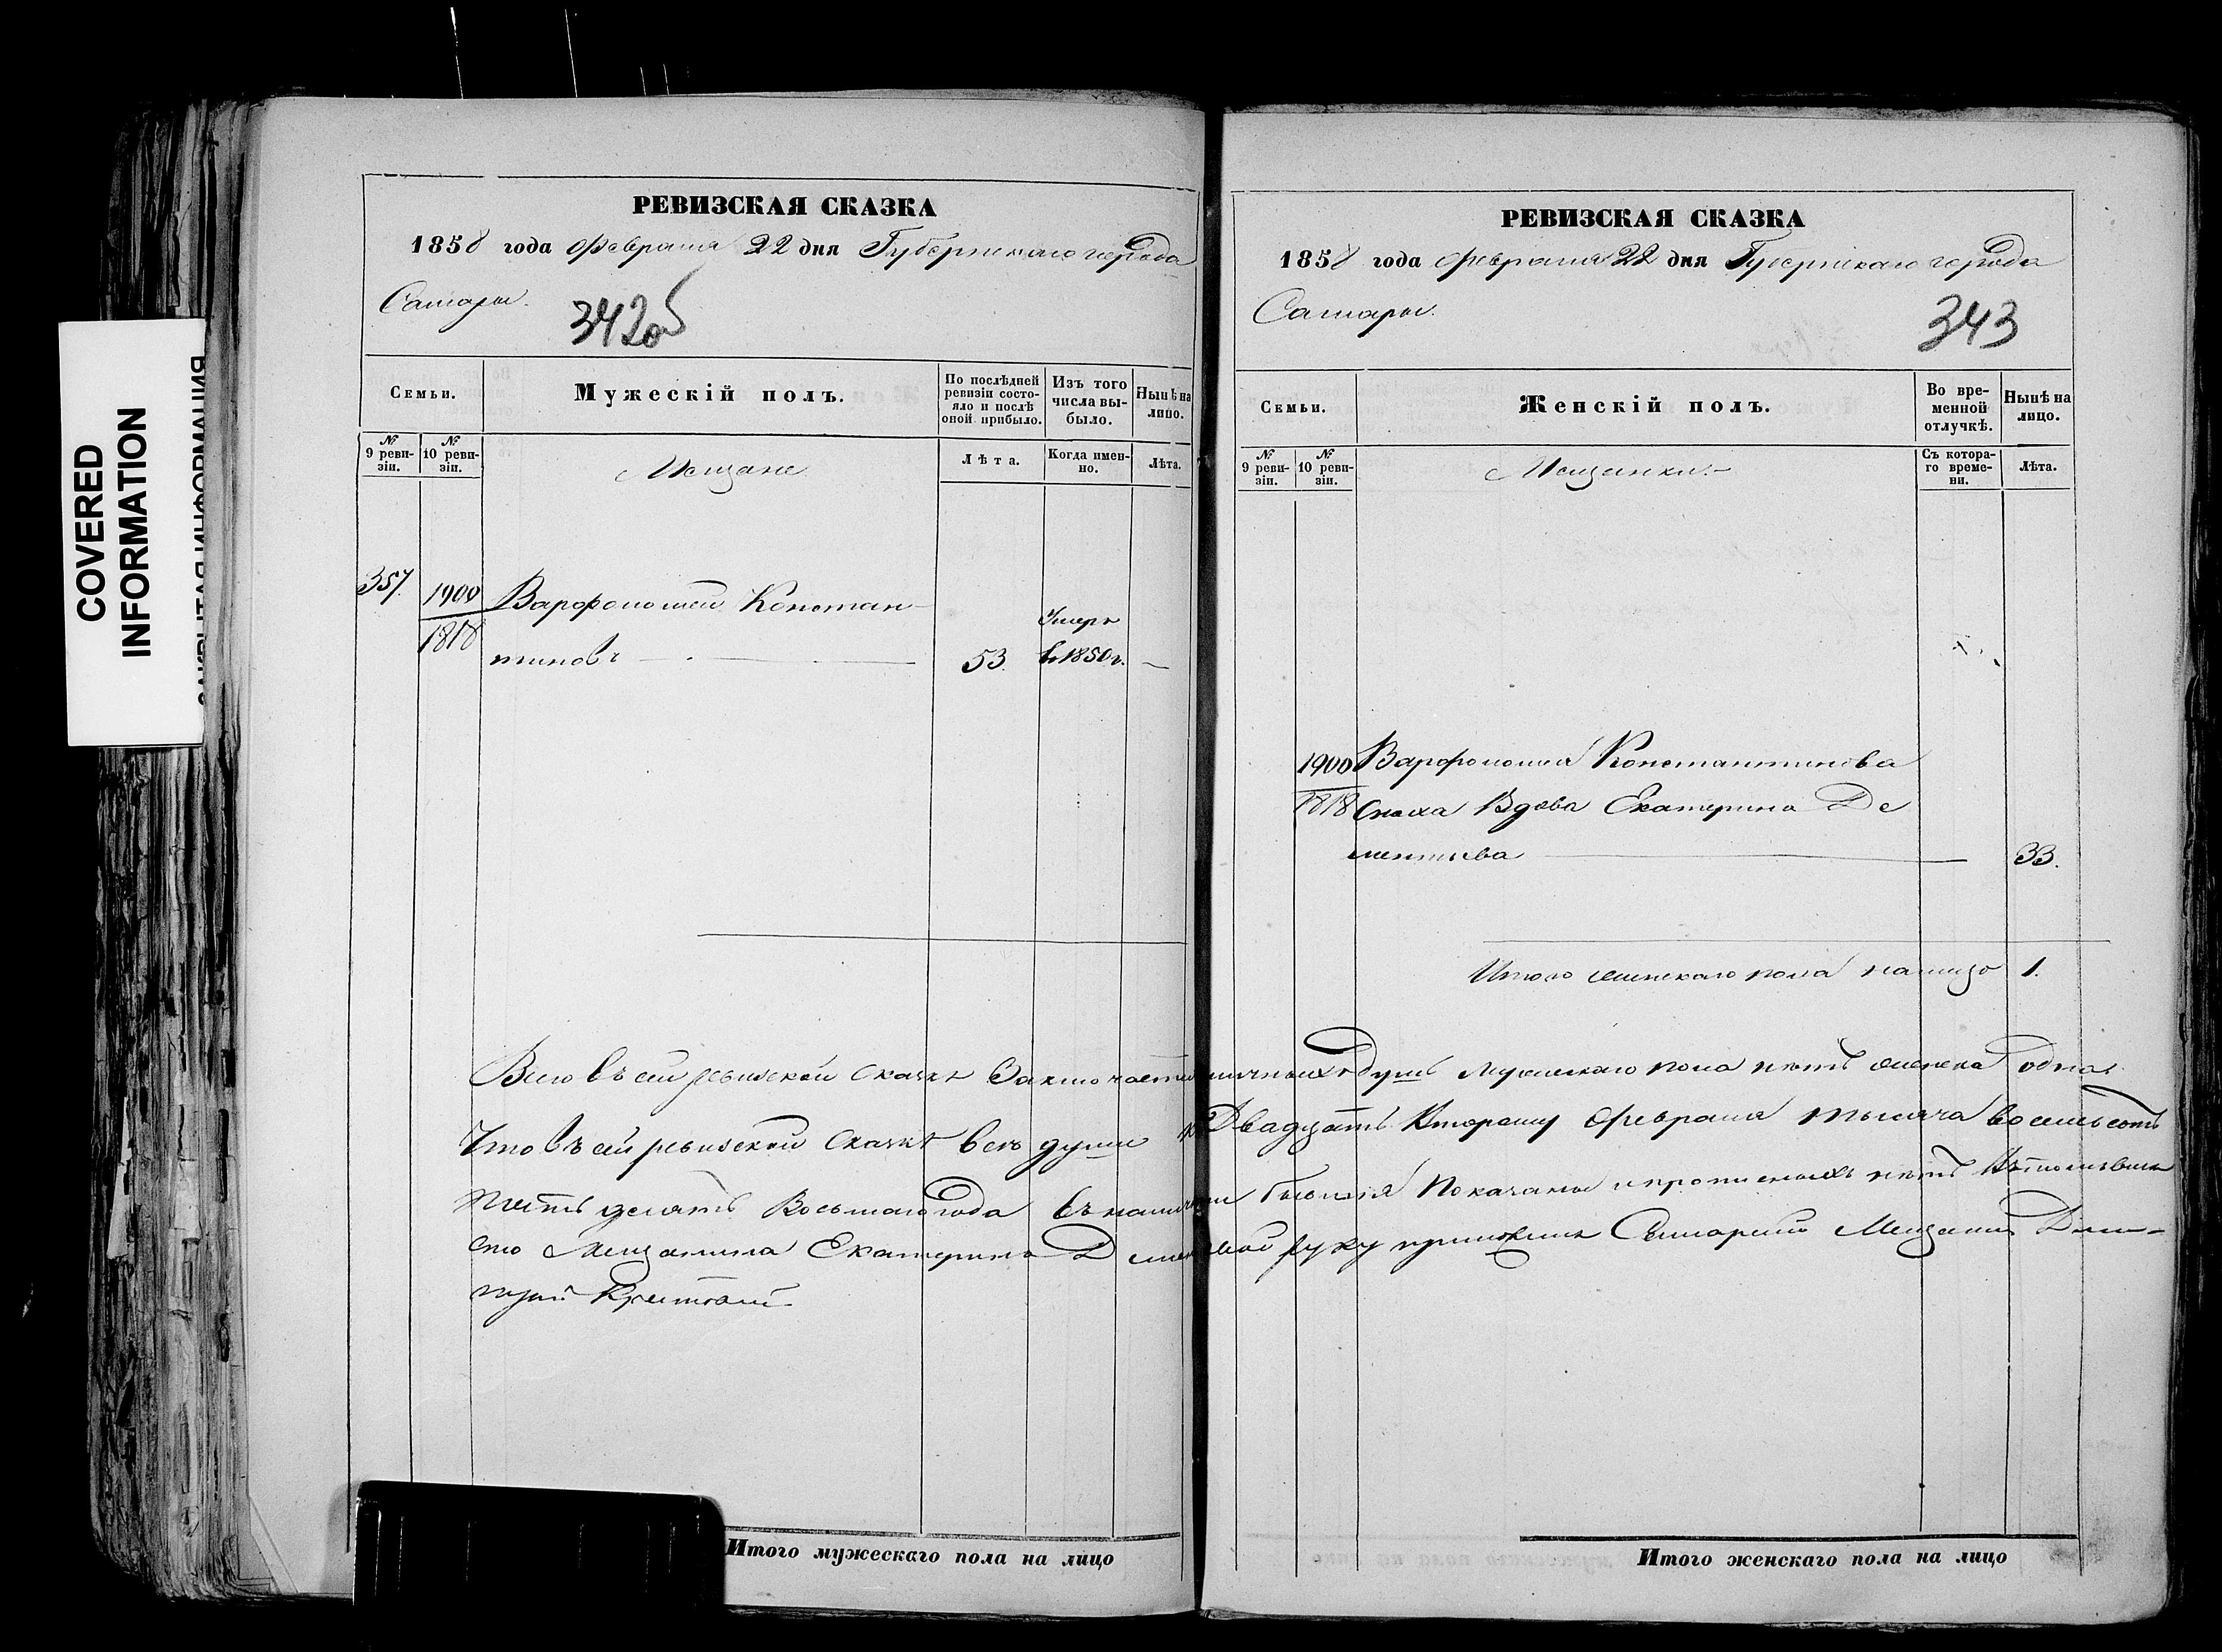 COVERED
INFORMATION
РЕВИЗСКАЯ СКАЗКА
1858 года Февраля 22 дня Губернскаго города
Самары.
342об
Семьи.
Мужескій полъ.
По послѣдней ревизіи состояло и послѣ оной прибыло.
Изъ того числа выбыло.
Нынѣ на лицо.
№ 9 ревизіи.
№ 10 ревизіи.
Мещане
Лѣта.
Когда именно.
Лѣта.
357.
1900
Варфоломей Констан-
Умеръ
1818
тиновъ
53.
въ 1850 г.
—
Всего въ сей ревизской сказкѣ заключается наличныхъ душъ мужескаго пола нѣтъ женска одна.
Что въ сей ревизской сказкѣ всѣ души къ Двадцать Второму Февраля тысяча восемьсотъ
пятьдесятъ Восьмаго года въ наличіи бывшія показаны и прописныхъ нѣтъ
Мещанина Екатерина руку приложилъ Самарскій Мещанинъ Дми-
трій
Итого мужескаго пола на лицо
РЕВИЗСКАЯ СКАЗКА
1858 года Февраля 22 дня Губернскаго города
Самары.
343
Семьи.
Женскій полъ.
Во временной отлучкѣ.
Нынѣ на лицо.
№ 9 ревизіи.
№ 10 ревизіи.
Мещанки.
Съ котораго времени.
Лѣта.
1900
Варфоломея Константинова
1818
Сноха Вдова Екатерина Де
ментьева
33.
Итого женскаго пола налицо 1.
Итого женскаго пола на лицо